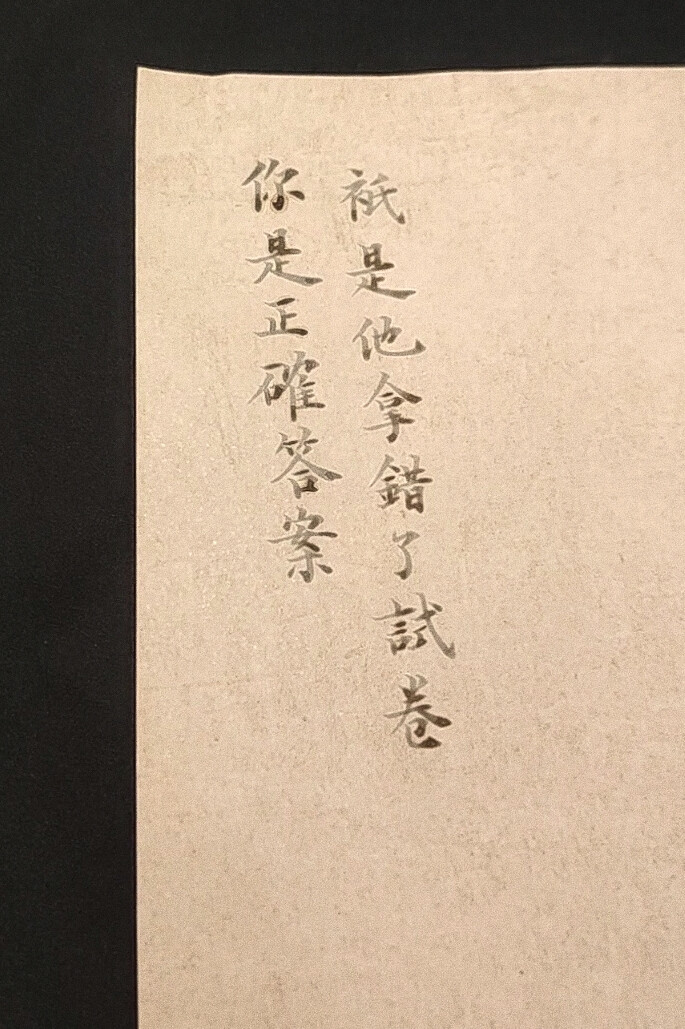 衹是他拿錯了試卷
你是正確答案